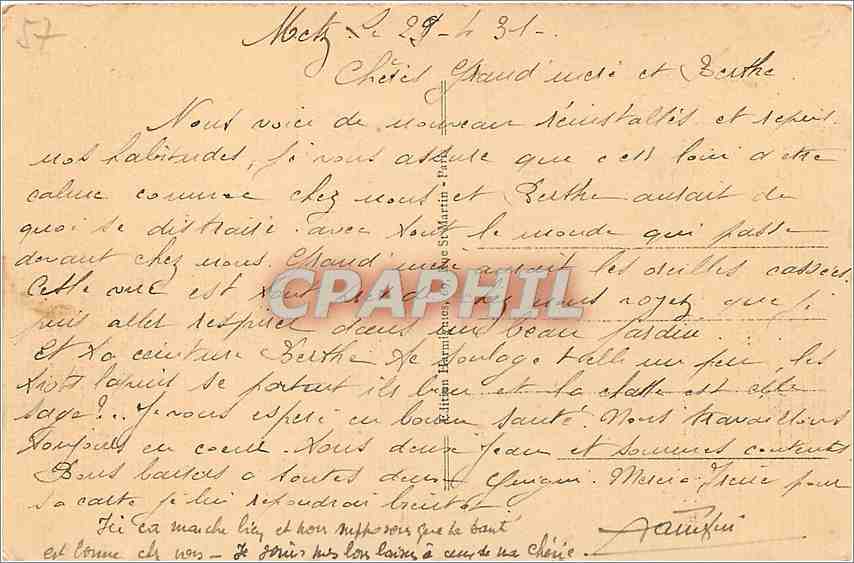 57
Metz le 29-4 31-.
Chères Grand'mère et Berthe.
Nous voici de nouveau réinstallés et repris
nos habitudes, je vous assure que c'est loin d'être
calme comme chez nous et Berthe aurait de
quoi se distraire avec tout le monde qui passe
devant chez nous. Grand'mère aurait les oreilles cassées.
Cette vue est tout près de chez nous voyez que je
puis aller respirer dans un beau jardin.
Et ta ceinture Berthe te soulage t'elle un peu, les
trois lapins se portent ils bien et la chatte est elle
sage?.. Je vous espère en bonne santé. Nous travaillons
toujours en coeur tous deux Jean et sommes contents
Bons baisers a toutes deux. Merci pour
sa carte je lui repondrai bientot.
Ici ca marche bien et nous supposons que la santé
est bonne chez vous - Je joins mes bons baisers à ceux de ma chérie.
Edition Harmignies, St-Martin - Paris
CPAPHIL